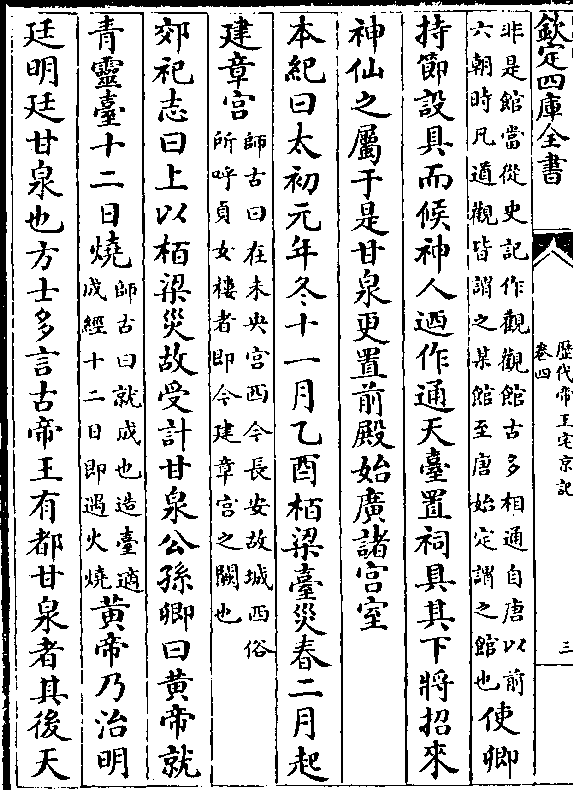 欽定四庫全書
歷代帝王宅京記
卷四
三
非是館當從史記作觀觀館古多相通自唐以前
六朝時凡道觀皆謂之某館至唐始定謂之館也
使卿
持節設具而候神人迺作通天臺置祠具其下將招來
神仙之屬于是甘泉更置前殿始廣諸宫室
本紀曰太初元年冬十一月乙酉栢梁臺災春二月起
建章宫
師古曰在未央宫西今長安故城西俗
所呼貞女樓者即今建章宫之闕也
郊祀志曰上以栢梁災故受計甘泉公孫卿曰黄帝就
青靈臺十二日燒
師古曰就成也造臺適
成經十二日即遇火燒
黄帝乃治明
廷明廷甘泉也方士多言古帝王有都甘泉者其後天